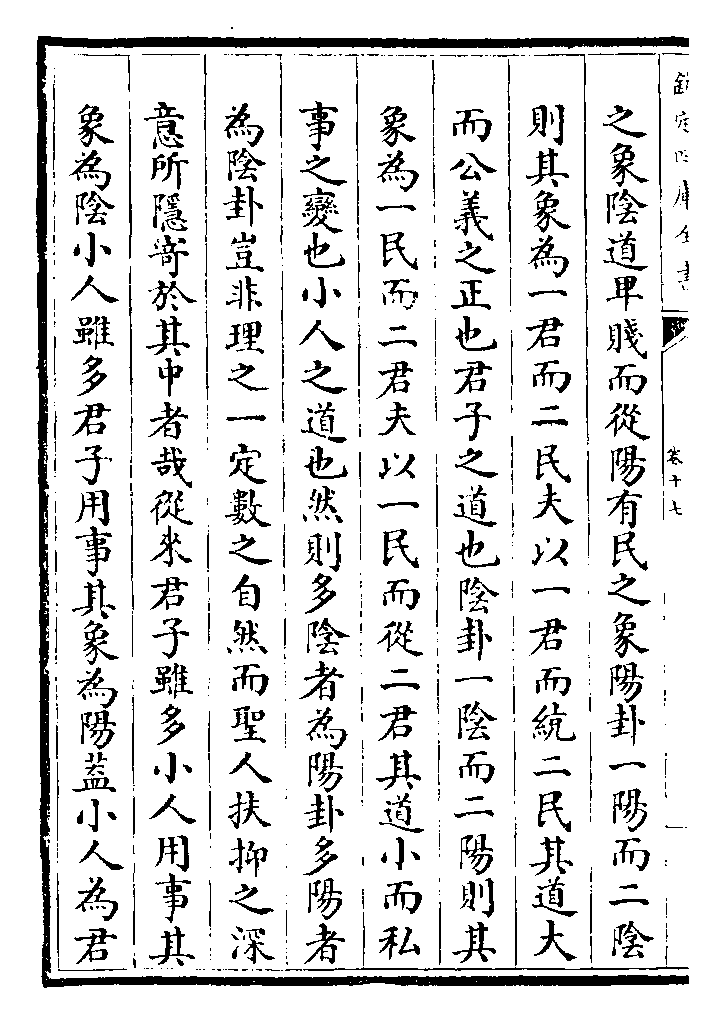 欽定四庫全書
卷十七
之象陰道卑賤而從陽有民之象陽卦一陽而二陰
則其象為一君而二民夫以一君而統二民其道大
而公義之正也君子之道也陰卦一陰而二陽則其
象為一民而二君夫以一民而從二君其道小而私
事之變也小人之道也然則多陰者為陽卦多陽者
為陰卦豈非理之一定數之自然而聖人扶抑之深
意所隱寄於其中者哉從來君子雖多小人用事其
象為陰小人雖多君子用事其象為陽蓋小人為君